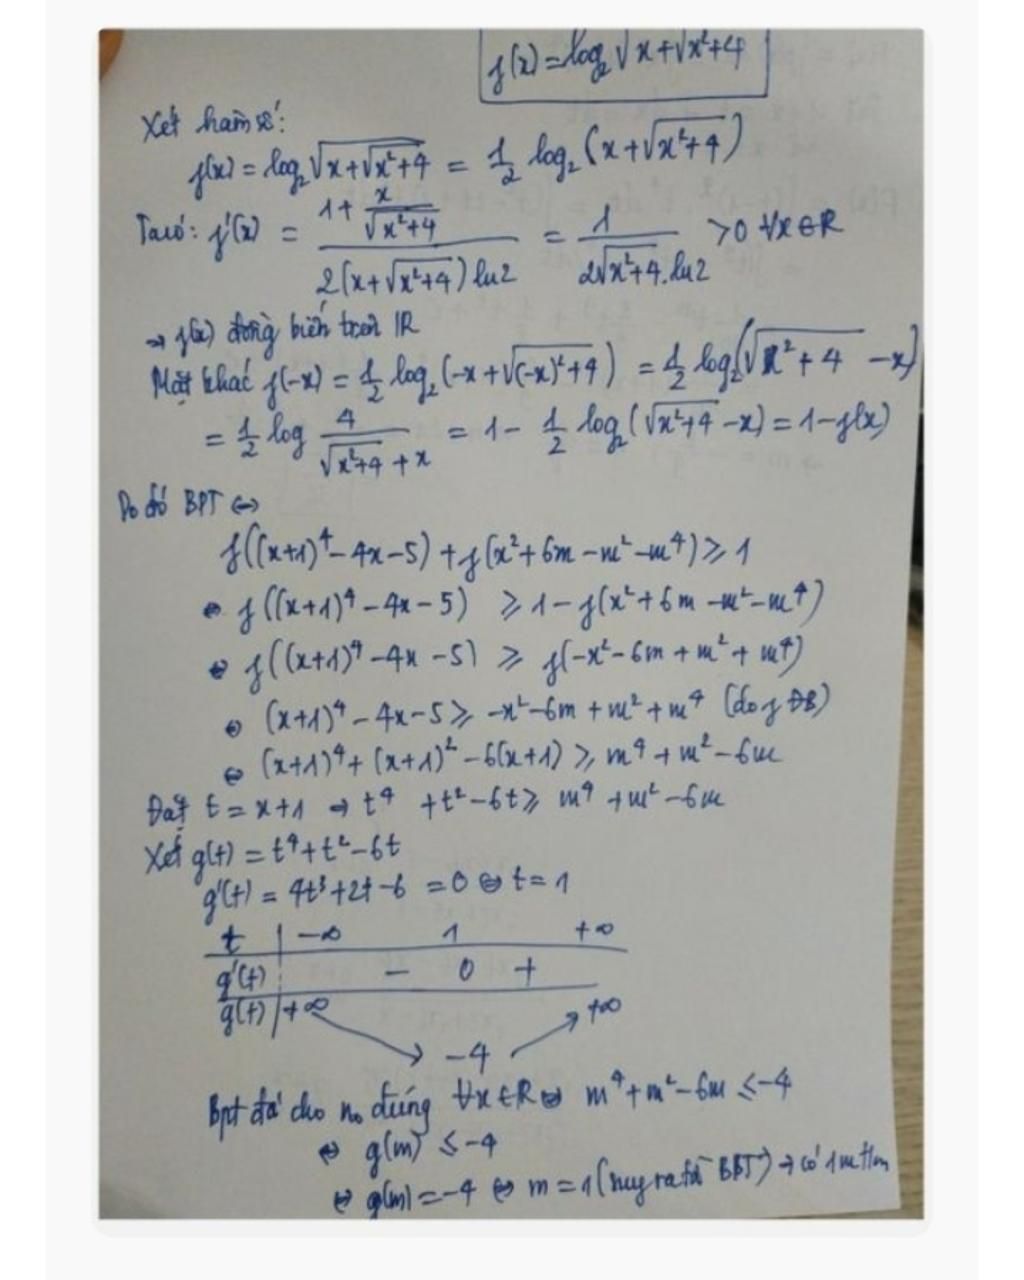 f(x) = log₂√(x+√(x²+4))
Xét hàm số:
f(x) = log₂√(x+√(x²+4)) = 1/2 log₂(x+√(x²+4))
Ta có: f'(x) = (1 + x/√(x²+4)) / (2(x+√(x²+4)) ln2) = 1/(2√(x²+4).ln2) > 0 ∀x∈R
→ f(x) đồng biến trên IR
Mặt khác f(-x) = 1/2 log₂(-x+√((-x)²+4)) = 1/2 log₂(√(x²+4) -x)
= 1/2 log 4/(√(x²+4) + x) = 1 - 1/2 log₂(√(x²+4) -x) = 1-f(x)
Do đó BPT ⇔
f((x+1)⁴-4x-5) + f(x²+6m-m²-m⁴) ≥ 1
⇔ f((x+1)⁴-4x-5) ≥ 1-f(x²+6m-m²-m⁴)
⇔ f((x+1)⁴-4x-5) ≥ f(-x²-6m+m²+m⁴)
⇔ (x+1)⁴-4x-5 ≥ -x²-6m+m²+m⁴ (do f ĐB)
⇔ (x+1)⁴+(x+1)²-6(x+1) ≥ m⁴+m²-6m
Đặt t = x+1 → t⁴ +t²-6t ≥ m⁴+m²-6m
Xét g(t) = t⁴+t²-6t
g'(t) = 4t³+2t-6 = 0 ⇔ t = 1
t | -∞ 1 +∞
g'(t) - 0 +
g(t) | +∞ +∞
-4
Bpt đã cho no đúng ∀x∈R ⇔ m⁴+m²-6m ≤ -4
⇔ g(m) ≤ -4
⇔ g(m) = -4 ⇔ m = 1 (suy ra từ BBT) → có 1 m